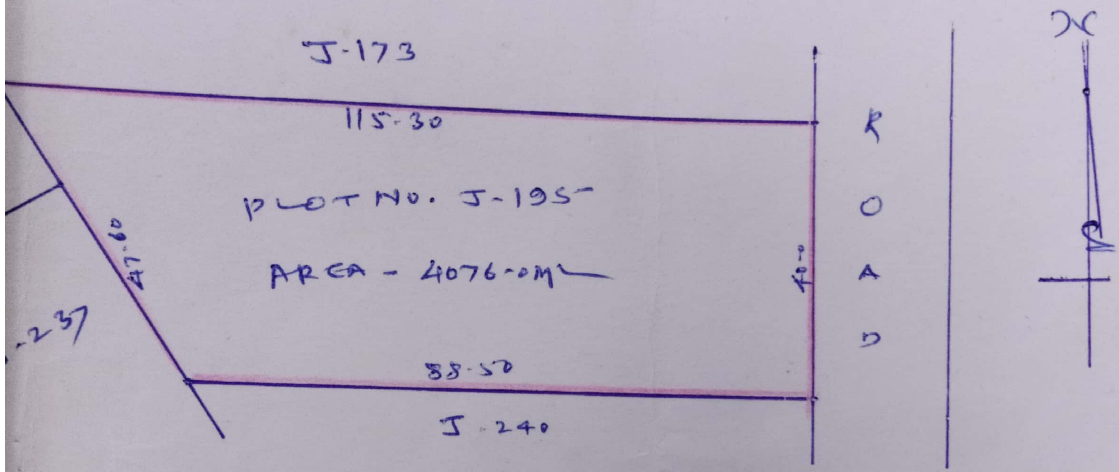 J-173
115-30
PLOT NO. J-195
AREA - 4076-0M2
47-60
40-0
88-50
J-240
-237
R
O
A
D
N